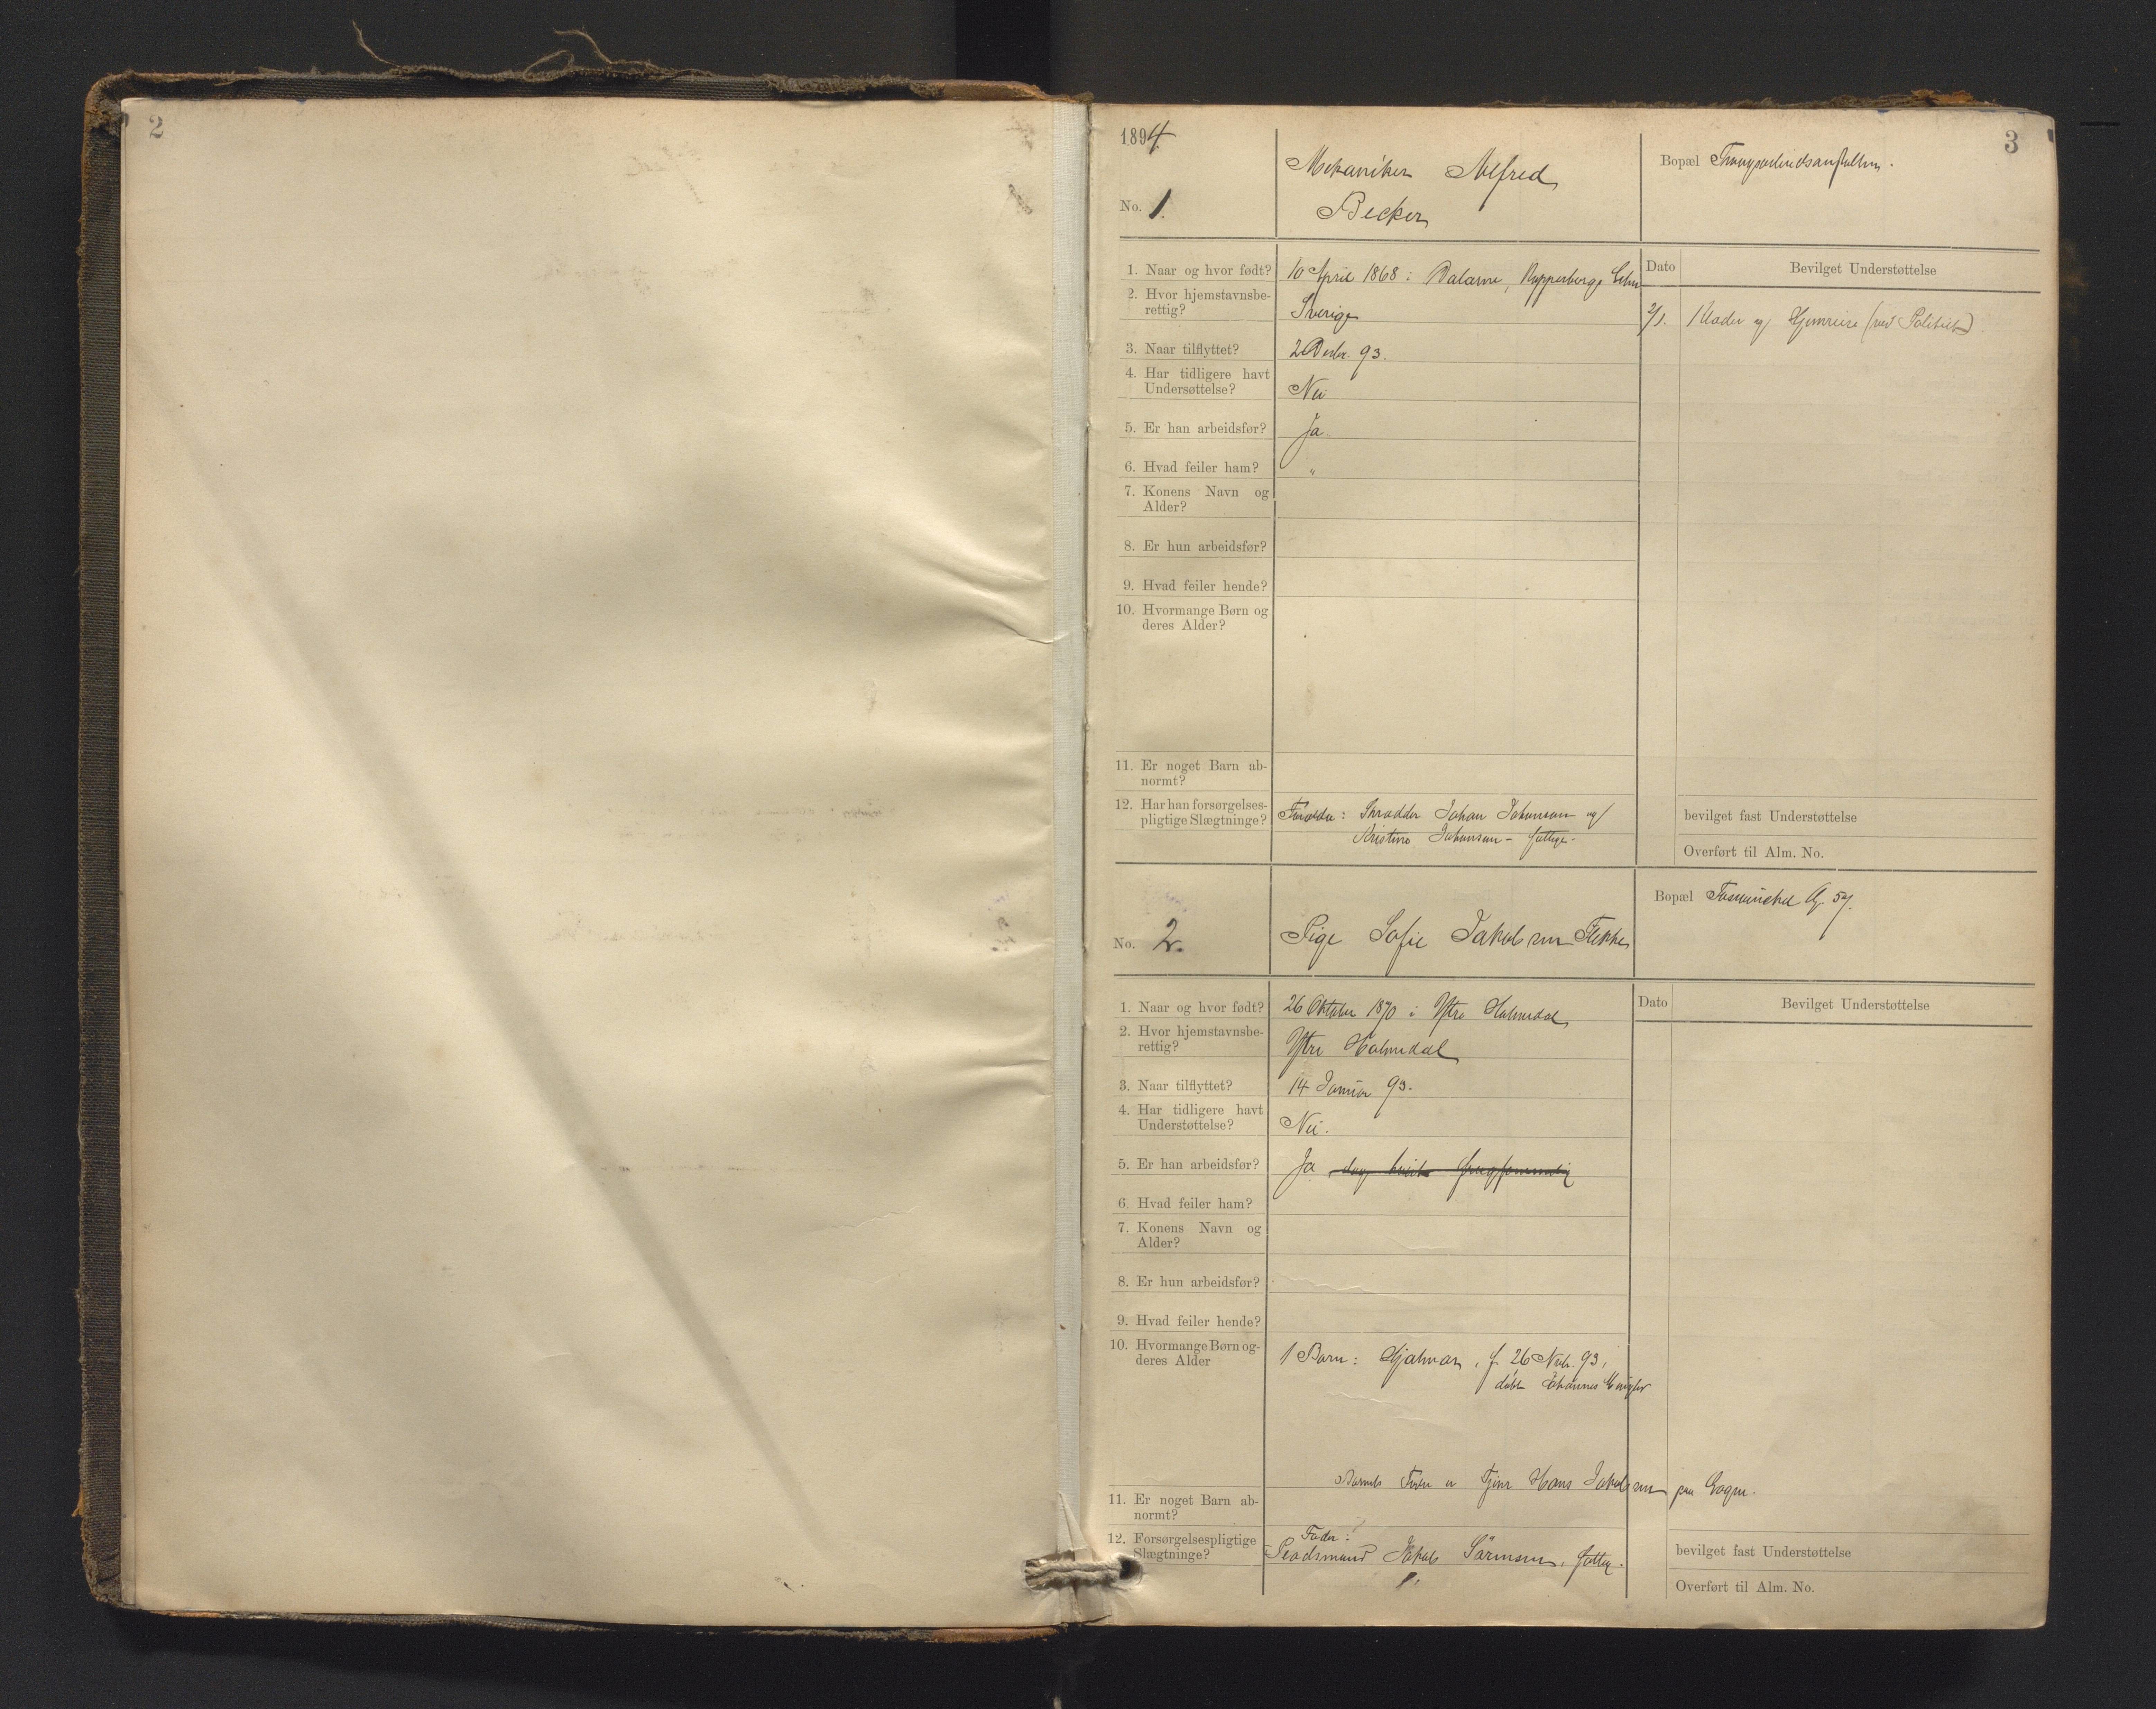 2
3
1894
No. 1.
Mekaniker Alfred
Becker
Bopæl Tvangsarbeidsanstalten.
Dato
Bevilget Understøttelse
1. Naar og hvor født? 10 April 1868 i Dalarne, Kopperbergs
2. Hvor hjemstavnsbe-
rettig? Sverige
2/1. Klæder og Hjemreise (ved Politiet)
3. Naar tilflyttet? 2 Decbr. 93.
4. Har tidligere havt
Undersøttelse? Nei
5. Er han arbeidsfør? Ja.
6. Hvad feiler ham? "
7. Konens Navn og
Alder?
8. Er hun arbeidsfør?
9. Hvad feiler hende?
10. Hvormange Børn og
deres Alder?
11. Er noget Barn ab-
normt?
12. Har han forsørgelses-
pligtige Slægtninge? Forældre: Skrædder Johan Johanson og
Kristine Johanson - fattige -
bevilget fast Understøttelse
Overført til Alm. No.
No. 2.
Pige Sofie Jakobsen Flekke
Bopæl 57.
Dato
Bevilget Understøttelse
1. Naar og hvor født? 26 Oktober 1870 i Ytre Holmedal
2. Hvor hjemstavnsbe-
rettig? Ytre Holmedal
3. Naar tilflyttet? 14 Januar 93.
4. Har tidligere havt
Understøttelse? Nei.
5. Er han arbeidsfør? Ja
6. Hvad feiler ham?
7. Konens Navn og
Alder?
8. Er hun arbeidsfør?
9. Hvad feiler hende?
10. Hvormange Børn og
deres Alder 1 Barn: Hjalmar, f. 26 Novbr. 93,
døbt Johannes
Barnets Fader er Tjener Hans Jakobsen paa
11. Er noget Barn ab-
normt?
12. Forsørgelsespligtige
Slægtninge? Fader:
Pladsmand Jakob Sörensen, fattig.
bevilget fast Understøttelse
Overført til Alm. No.